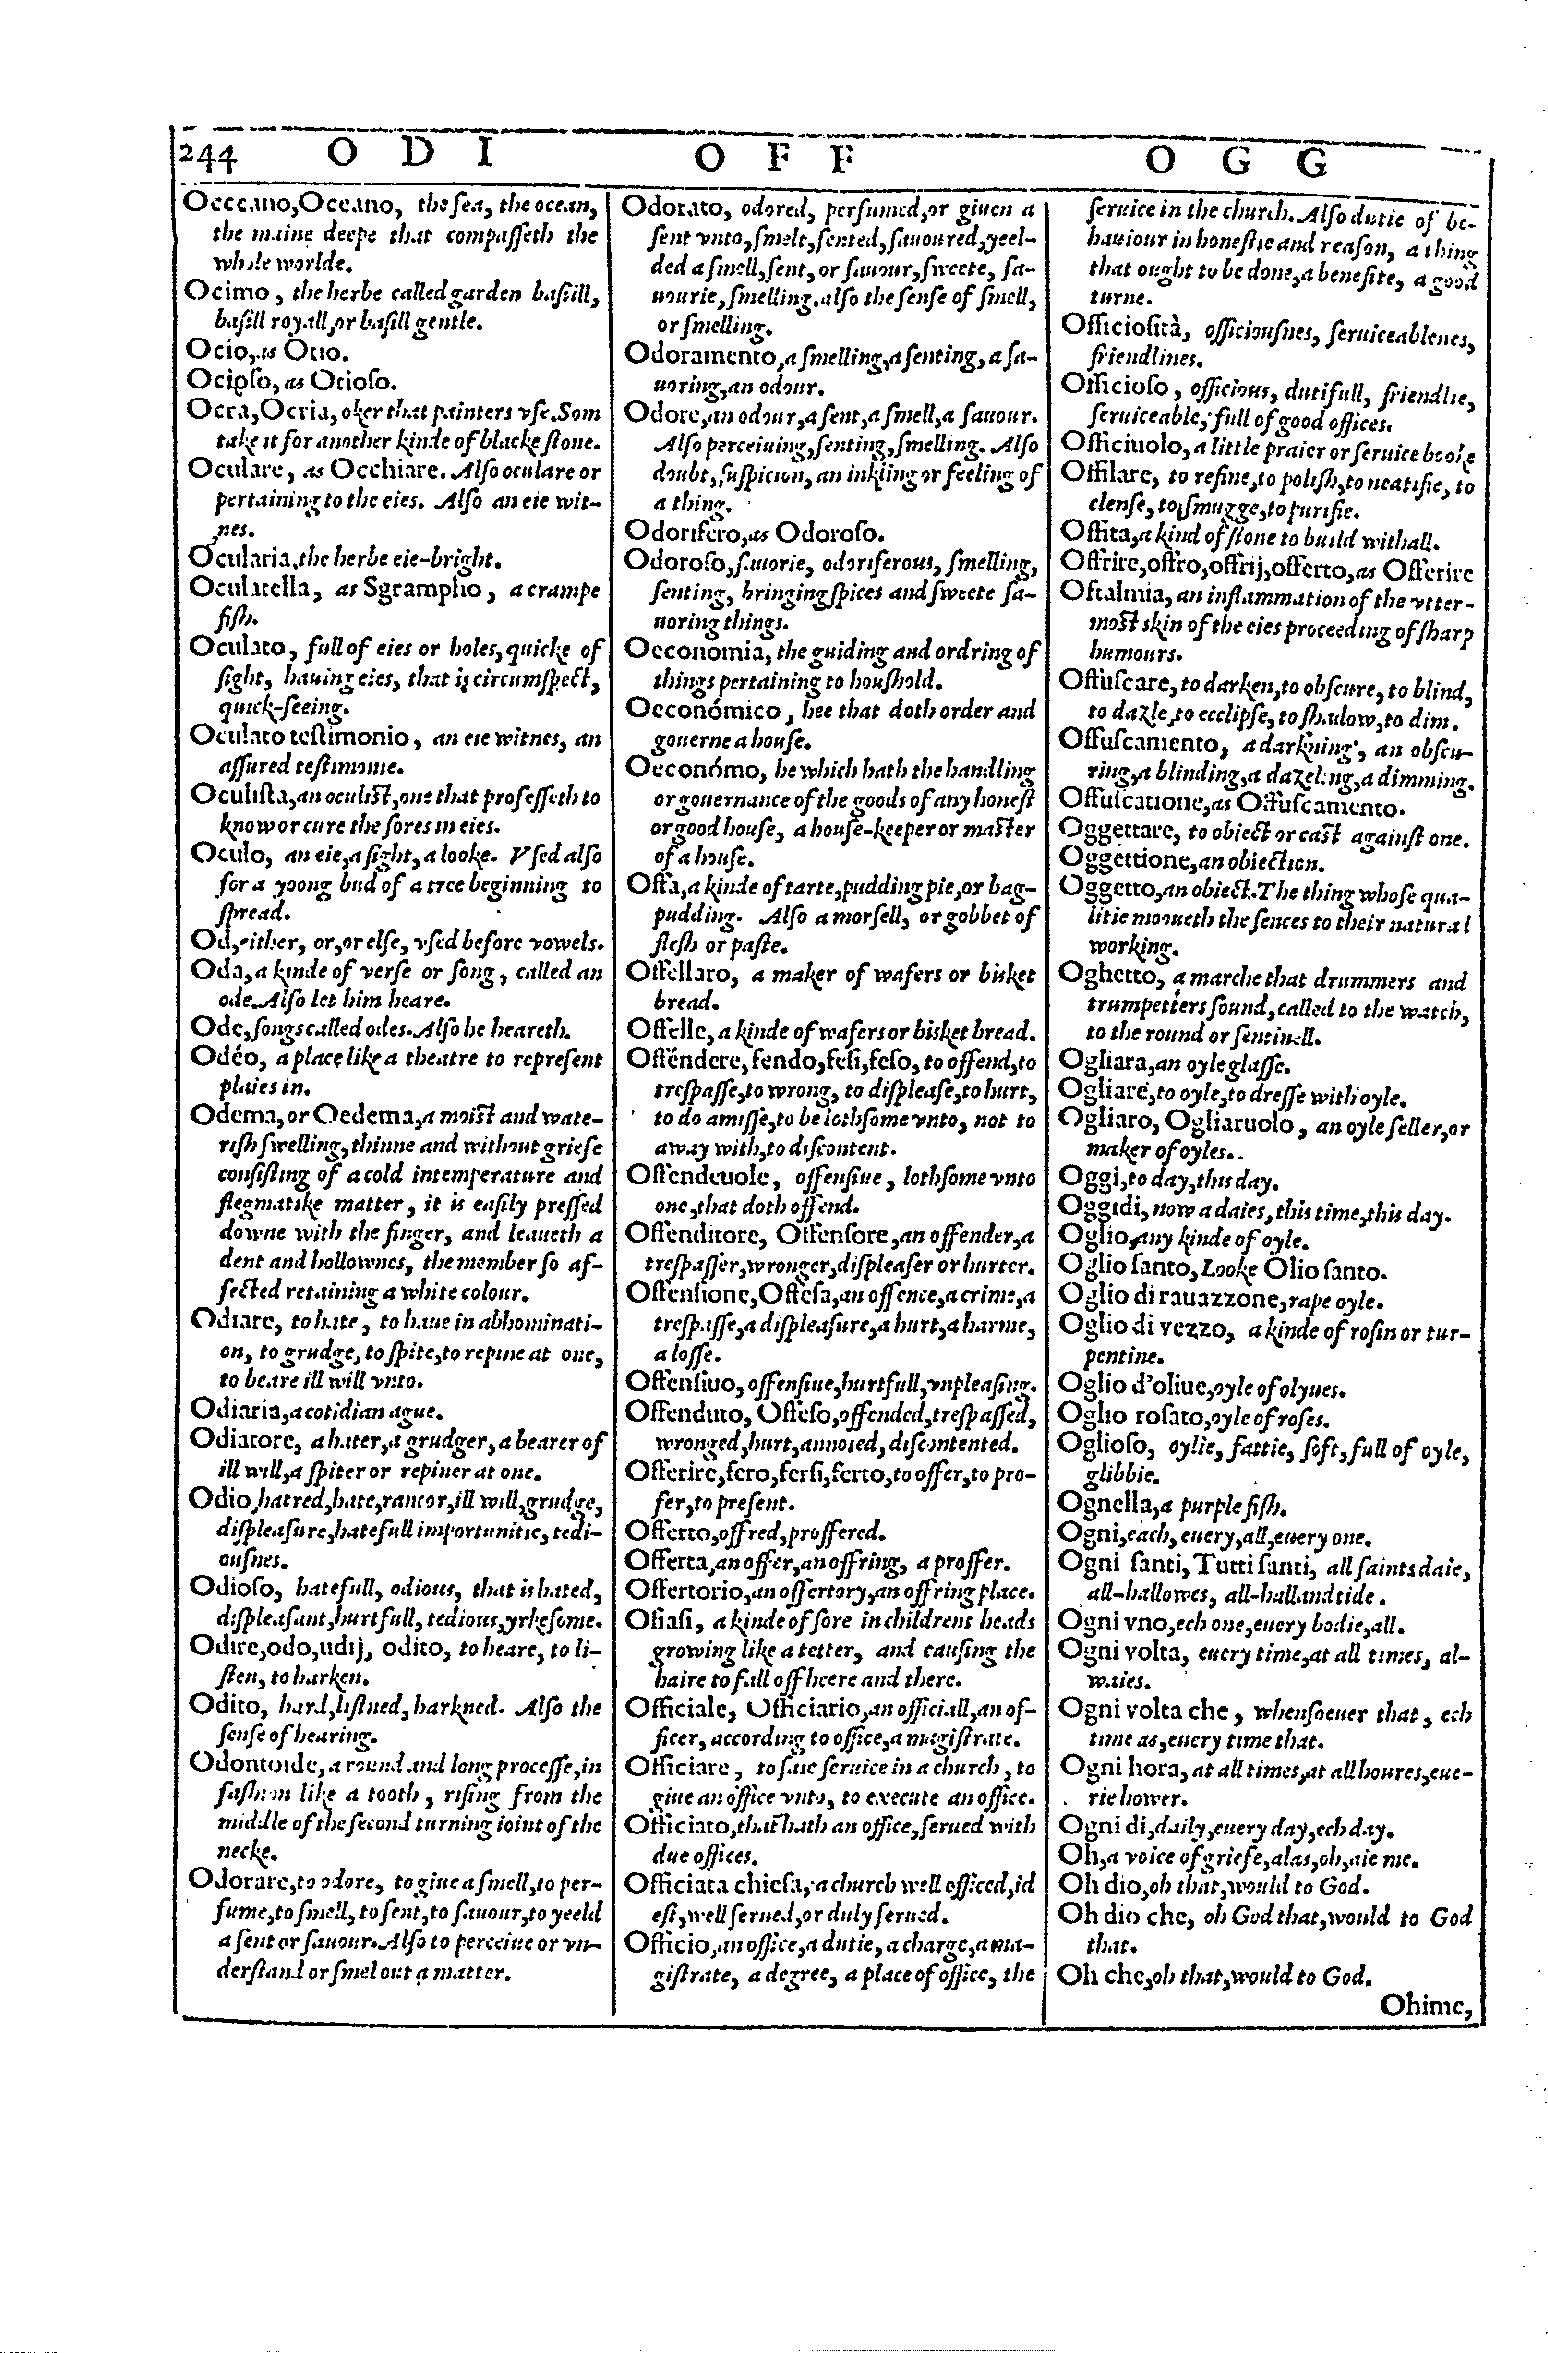 244 O D I O F F O G G
Occeano,Oceano, the ſea, the ocean,
the maine deepe that compaſſeth the
whole worlde.
Ocimo, the herbe called garden baſiill,
baſill royall,or baſill gentle.
Ocio,as Otio.
Ocioſo, as Otioſo.
Ocra,Ocria, oker that painters vſe.Som
take it for another kinde of blacke ſtone.
Oculare, as Occhiare. Alſo oculare or
pertaining to the eies. Alſo an eie wit-
nes.
Ocularia,the herbe eie-bright.
Oculatella, as Sgrampho, a crampe
fiſh.
Oculato, full of eies or holes,quicke of
ſight, hauing eies, that is circumſpect,
quick-ſeeing.
Oculato teſtimonio, an eie witnes, an
aſſured teſtimonie.
Oculiſta,an oculiſt,one that profeſſeth to
know or cure the ſores in eies.
Oculo, an eie,a ſight,a looke. Vſed alſo
for a yoong bud of a tree beginning to
ſpread.
Od,either, or,or elſe, vſed before vowels.
Oda,a kinde of verſe or ſong, called an
ode.Alſo let him heare.
Ode,ſongs called odes.Alſo he heareth.
Odéo, a place like a theatre to repreſent
plaies in.
Odema,or Oedema,a moiſt and wate-
riſh ſwelling,thinne and without griefe
conſiſting of a cold intemperature and
flegmatike matter, it is eaſily preſſed
downe with the finger, and leaueth a
dent and hollownes, the member ſo af-
fected retaining a white colour.
Odiare, to hate, to haue in abhominati-
on, to grudge, to ſpite,to repine at one,
to beare ill will vnto.
Odiaria,a cotidian ague.
Odiatore, a hater,a grudger,a bearer of
ill will,a ſpiter or repiner at one.
Odio,hatred,hate,rancor,ill will,grudge,
diſpleaſure,hatefull importunitie,tedi-
ouſnes.
Odioſo, hatefull, odious, that is hated,
diſpleaſant,hurtfull, tedious,yrkeſome.
Odire,odo,udij, odito, to heare, to li-
ſten, to harken.
Odito, hard,liſtned,harkned. Alſo the
ſenſe of hearing.
Odontoide,a round and long proceſſe,in
faſhion like a tooth, riſing from the
middle of the ſecond turning ioint of the
necke.
Odorare,to odore, to giue a ſmell,to per-
fume,to ſmell, to ſent,to ſauour,to yeeld
a ſent or ſauour.Alſo to perceiue or vn-
derſtand or ſmel out a matter.
Odorato, odored, perfumed,or giuen a
ſent vnto,ſmelt,ſented,ſauoured,yeel-
ded a ſmell,ſent, or ſauour,ſweete, ſa-
uourie,ſmelling.alſo the ſenſe of ſmell,
or ſmelling.
Odoramento,a ſmelling,a ſenting, a ſa-
uoring,an odour.
Odore,an odour,a ſent,a ſmell,a ſauour.
Alſo perceiuing,ſenting,ſmelling. Alſo
doubt,ſuſpicion,an inkling or feeling of
a thing.
Odorifero,as Odoroſo.
Odoroſo,ſauorie, odoriferous, ſmelling,
ſenting, bringing ſpices and ſweete ſa-
uoring things.
Oeconomia, the guiding and ordring of
things pertaining to houſhold.
Oeconómico, hee that doth order and
gouerne a houſe.
Oeconómo, he which hath the handling
or gouernance of the goods of any honeſt
or good houſe, a houſe-keeper or maſter
of a houſe.
Offa,a kinde of tarte,pudding pie,or bag-
pudding. Alſo a morſell, or gobbet of
fleſh or paſte.
Offellaro, a maker of wafers or bisket
bread.
Offelle, a kinde of wafers or bisket bread.
Offéndere,fendo,feſi,feſo, to offend,to
treſpaſſe,to wrong, to diſpleaſe,to hurt,
to do amiſſe,to be lothſome vnto, not to
away with,to diſcontent.
Offendeuole, offenſiue, lothſome vnto
one,that doth offend.
Offenditore, Offenſore,an offender,a
treſpaſſer,wronger,diſpleaſer or hurter.
Offenſione,Offeſa,an offence,a crime,a
treſpaſſe,a diſpleaſure,a hurt,a harme,
a loſſe.
Offenſiuo,offenſiue,hurtfull,vnpleaſing.
Offenduto, Offeſo,offended,treſpaſſed,
wronged,hurt,annoied,diſcontented.
Offerire,fero,ferſi,ferto,to offer,to pro-
fer,to preſent.
Offerto,offred,proffered.
Offerta,an offer,an offring, a proffer.
Offertorio,an offertory,an offring place.
Ofiaſi, a kinde of ſore in childrens heads
growing like a tetter, and cauſing the
haire to fall off heere and there.
Officiale, Officiario,an officiall,an of-
ficer, according to office,a magiſtrate.
Officiare, to ſaie ſeruice in a church, to
giue an office vnto, to execute an office.
Officiato,that hath an office,ſerued with
due offices.
Officiata chieſa, a church well officed,id
eſt,well ſerued,or duly ſerued.
Officio,an office,a dutie, a charge,a ma-
giſtrate, a degree, a place of office, the
ſeruice in the church.Alſo dutie of be-
hauiour in honeſtie and reaſon, a thing
that ought to be done,a benefite, a good
turne.
Officioſità, officiouſnes, ſeruiceablenes,
friendlines.
Officioſo, officious, dutifull, friendlie,
ſeruiceable, full of good offices.
Officiuolo,a little praier or ſeruice booke
Offilare, to refine,to poliſh,to neatifie, to
clenſe, to ſmugge,to purifie.
Offita,a kind of ſtone to build withall.
Offrire,offro,offrij,offerto,as Offerire
Oftalmia,an inflammation of the vtter-
moſt skin of the eies proceeding of ſharp
humours.
Offuſcare,to darken,to obſcure,to blind,
to dazle,to ecclipſe,to ſhadow,to dim.
Offuſcamento, a darkning, an obſcu-
ring,a blinding,a dazeling,a dimming.
Offuſcatione,as Offuſcamento.
Oggettare, to obiect or caſt againſt one.
Oggettione,an obiection.
Oggetto,an obiect.The thing whoſe qua-
litie moueth the ſences to their natural
working.
Oghetto, a marche that drummers and
trumpetters ſound,called to the watch,
to the round or ſentinell.
Ogliara,an oyle glaſſe.
Ogliare,to oyle,to dreſſe with oyle.
Ogliaro, Ogliaruolo, an oyle ſeller,or
maker of oyles.
Oggi,to day,this day.
Oggidi,now a daies,this time,this day.
Oglio,any kinde of oyle.
Oglio ſanto, Looke Olio ſanto.
Oglio di rauazzone,rape oyle.
Oglio di vezzo, a kinde of roſin or tur-
pentine.
Oglio d'oliue,oyle of olyues.
Oglio roſato,oyle of roſes.
Oglioſo, oylie, fattie, ſoft,full of oyle,
glibbie.
Ognella,a purple fiſh.
Ogni,each,euery,all,euery one.
Ogni ſanti,Tutti ſanti, all ſaints daie,
all-hallowes, all-hallandtide.
Ogni vno,ech one,euery bodie,all.
Ogni volta, euery time,at all times, al-
waies.
Ogni volta che, whenſoeuer that, ech
time as,euery time that.
Ogni hora,at all times,at all houres,eue-
rie hower.
Ogni di,daily,euery day,ech day.
Oh,a voice of griefe,alas,oh,aie me.
Oh dio,oh that,would to God.
Oh dio che, oh God that,would to God
that.
Oh che,oh that,would to God.
Ohime,